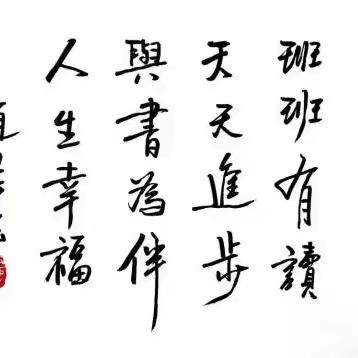 班班有讀
天天進步
與書為伴
人生幸福